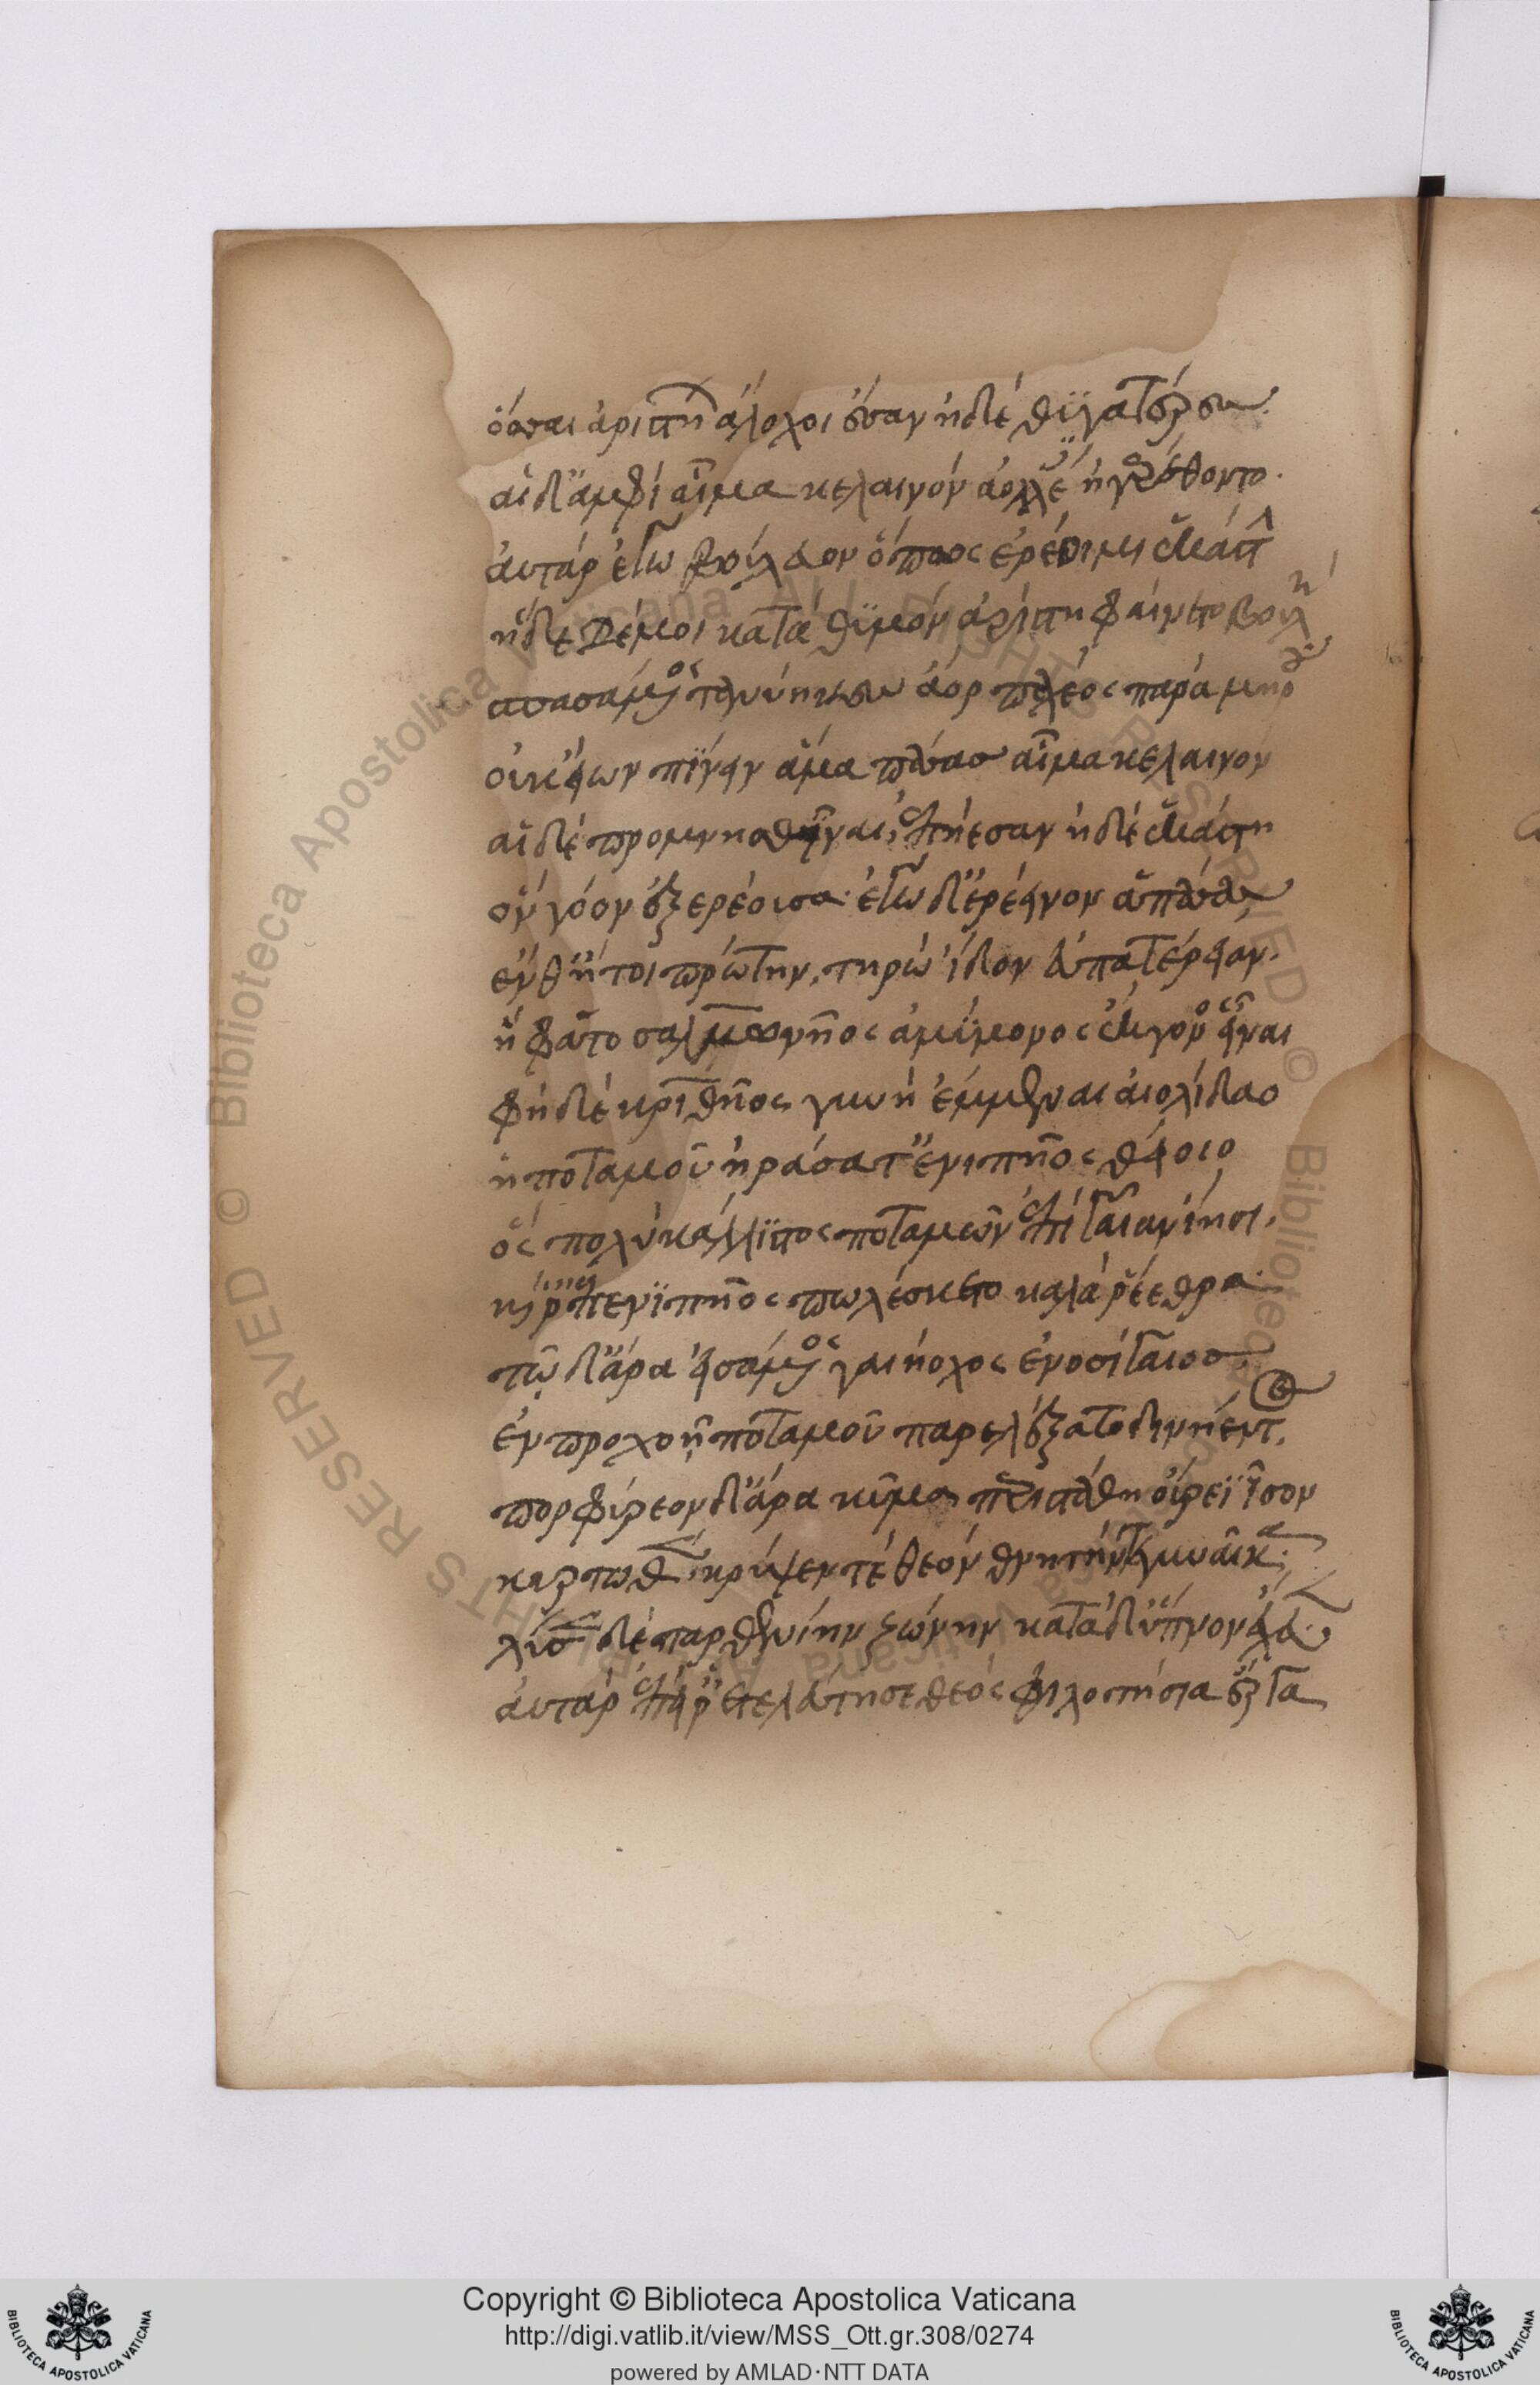 ὅσσαι ἀριστήων ἄλοχοι ἔσαν ἠδὲ θύγατρες
αἱ δ' ἀμφὶ αἷμα κελαινὸν ἀολλέες ἠγερέθοντο
αὐτὰρ ἐγὼ βούλευον ὅπως ἐρέοιμι ἑκάστην
ἥδε δέ μοι κατὰ θυμὸν ἀρίστη φαίνετο βουλή
σπασάμενος τανύηκες ἄορ παχέος παρὰ μηροῦ
οὐκ εἴων πίνειν ἅμα πάσας αἷμα κελαινόν
αἱ δὲ προμνηστῖναι ἐπήεσαν ἠδὲ ἑκάστη
ὃν γόον ἐξερέουσα· ἐγὼ δ' ἐρέεινον ἁπάσας
ἔνθ' ἤτοι πρώτην τυρὼ ἴδον εὐπατέρειαν
ἣ φάτο σαλμωνῆος ἀμύμονος ἔκγονος εἶναι
φῆ δὲ κρηθῆος γυνὴ ἔμμεναι αἰολίδαο
ἣ ποταμοῦ ἠράσατ' ἐνιπῆος θείοιο
ὃς πολὺ κάλλιστος ποταμῶν ἐπὶ γαῖαν ἵησι
καί ῥ' ἐπ' ἐνιπῆος πωλέσκετο καλὰ ῥέεθρα
τῷ δ' ἄρα εἰσάμενος γαιήοχος ἐνοσίγαιος
ἐν προχοῇς ποταμοῦ παρελέξατο δινήεντος
πορφύρεον δ' ἄρα κῦμα περιστάθη οὔρεϊ ἶσον
κυρτωθέν κρύψεν τὲ θεὸν θνητήν τε γυναῖκα
λῦσε δὲ παρθενίην ζώνην κατὰ δ' ὕπνον ἔχευεν
αὐτὰρ ἐπεί ῥ' ἐτελεύτησε θεὸς φιλοτήσια ἔργα
Copyright © Biblioteca Apostolica Vaticana
http://digi.vatlib.it/view/MSS_Ott.gr.308/0274
powered by AMLAD·NTT DATA